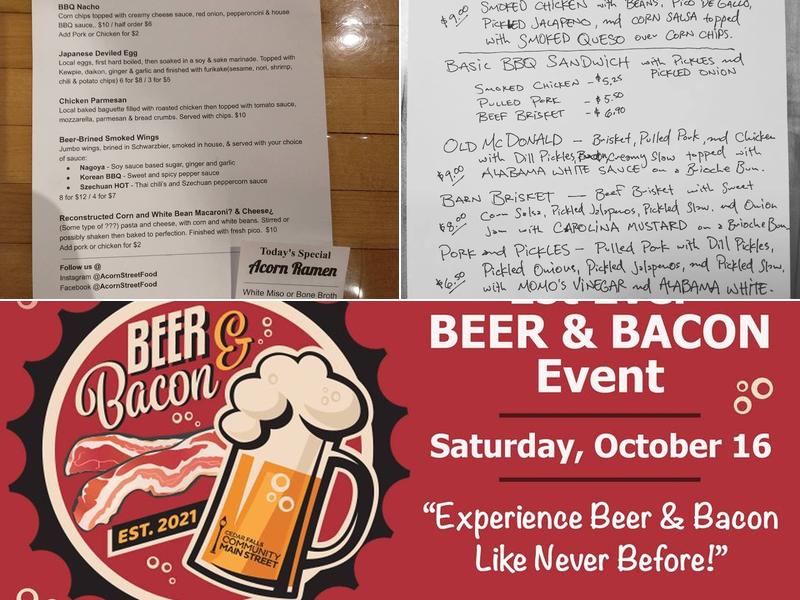 BBQ Nacho
Corn chips topped with creamy cheese sauce, red onion, pepperoncini & house
BBQ sauce,. $10 / half order $6
Add Pork or Chicken for $2
Japanese Deviled Egg
Local eggs, first hard boiled, then soaked in a soy & sake marinade. Topped with
Kewpie, daikon, ginger & garlic and finished with furikake(sesame, nori, shrimp,
chili & potato chips) 6 for $8 / 3 for $5
Chicken Parmesan
Local baked baguette filled with roasted chicken then topped with tomato sauce,
mozzarella, parmesan & bread crumbs. Served with chips. $10
Beer-Brined Smoked Wings
Jumbo wings, brined in Schwarzbier, smoked in house, & served with your choice
of sauce:
• Nagoya - Soy sauce based sugar, ginger and garlic
• Korean BBQ - Sweet and spicy pepper sauce
• Szechuan HOT - Thai chili's and Szechuan peppercorn sauce
8 for $12 / 4 for $7
Reconstructed Corn and White Bean Macaroni? & Cheese¿
(Some type of ???) pasta and cheese, with corn and white beans. Stirred or
possibly shaken then baked to perfection. Finished with fresh pico. $10
Add pork or chicken for $2
Follow us @
Instagram @AcornStreetFood
Facebook @AcornStreetFood
Today's Special
Acorn Ramen
White Miso or Bone Broth
$9.00 SMOKED CHICKEN with BEANS, PICO DE GALLO,
PICKLED JALAPENO, and CORN SALSA topped
with SMOKED QUESO over CORN CHIPS.
BASIC BBQ SANDWICH with PICKLES and
PICKLED ONION
SMOKED CHICKEN - $5.25
PULLED PORK - $5.50
BEEF BRISKET - $6.90
OLD McDONALD - Brisket, Pulled Pork, and Chicken
with Dill Pickles, Creamy Slaw topped with
$9.00 ALABAMA WHITE SAUCE on a Brioche Bun.
BARN BRISKET - Beef Brisket with Sweet
$8.00 Corn Salsa, Pickled Jalapenos, Pickled Slaw, and Onion
Jam with CAROLINA MUSTARD on a Brioche Bun
PORK and PICKLES - Pulled Pork with Dill Pickles,
Pickled Onions, Pickled Jalapenos, and Pickled Slaw,
$6.50 with MOMO'S VINEGAR and ALABAMA WHITE.
BEER &
Bacon
EST. 2021
CEDAR FALLS
COMMUNITY
MAIN STREET
BEER & BACON
Event
Saturday, October 16
“Experience Beer & Bacon
Like Never Before!”